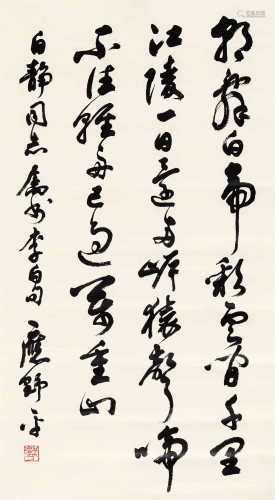 朝辞白帝彩云间千里
江陵一日还两岸猿声啼
不住轻舟已过万重山
白静同志属书李白句 应野平